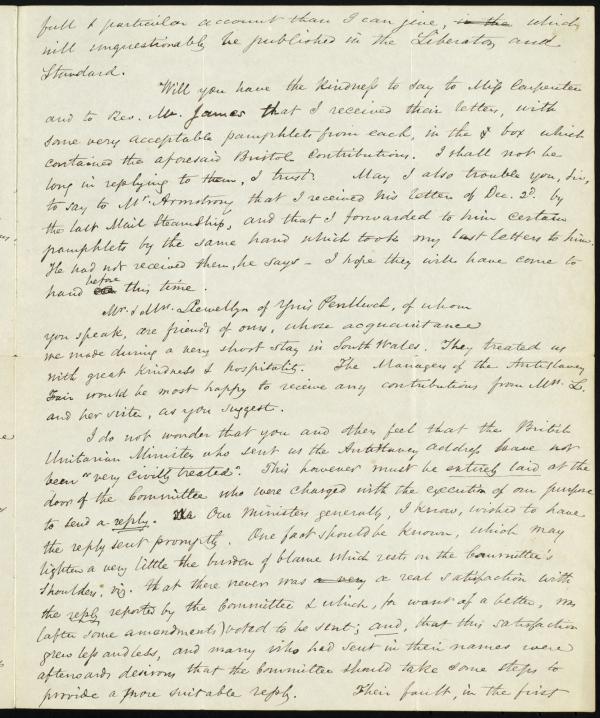 full & particular account than I can give, in the which
will unquestionably be published in the Liberator and
Standard.
Will you have the kindness to say to Miss Carpenter
and to Rev. Mr. James that I received their letters, with
some very acceptable pamphlets from each, in the box which
contained the aforesaid Bristol Contributions. I shall not be
long in replying to them, I trust. May I also trouble you, Sir,
to say to Mr. Armstrong that I received his letter of Dec. 2d. by
the last Mail Steamship, and that I forwarded to him certain
pamphlets by the same hand which took my last letters to him.
He had not received them, he says – I hope they will have come to
hand before this time.
Mr. & Mrs. Llewellyn of Ynis Penllwch, of whom
you speak, are friends of ours, whose acquaintance
we made during a very short stay in South Wales. They treated us
with great kindness & hospitality. The Managers of the Antislavery
Fair would be most happy to receive any contributions from Mrs. L.
and her sister, as you suggest.
I do not wonder that you and others feel that the British
Unitarian Ministers who sent us the Antislavery address have not
been "very civilly treated". This however must be entirely laid at the
door of the Committee who were charged with the execution of our purpose
to send a reply. Our Ministers generally, I know, wished to have
the reply sent promptly. One fact should be known, which may
lighten a very little the burden of blame which rests on the Committee's
shoulders, viz. that there never was a very a real satisfaction with
the reply reported by the Committee & which, for want of a better, was
(after some amendments) voted to be sent; and, that this satisfaction
grew less and less, and many who had sent in their names were
afterwards desirous that the Committee should take some steps to
provide a more suitable reply. Their fault, in the first